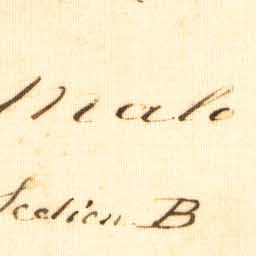 Malo
Section B